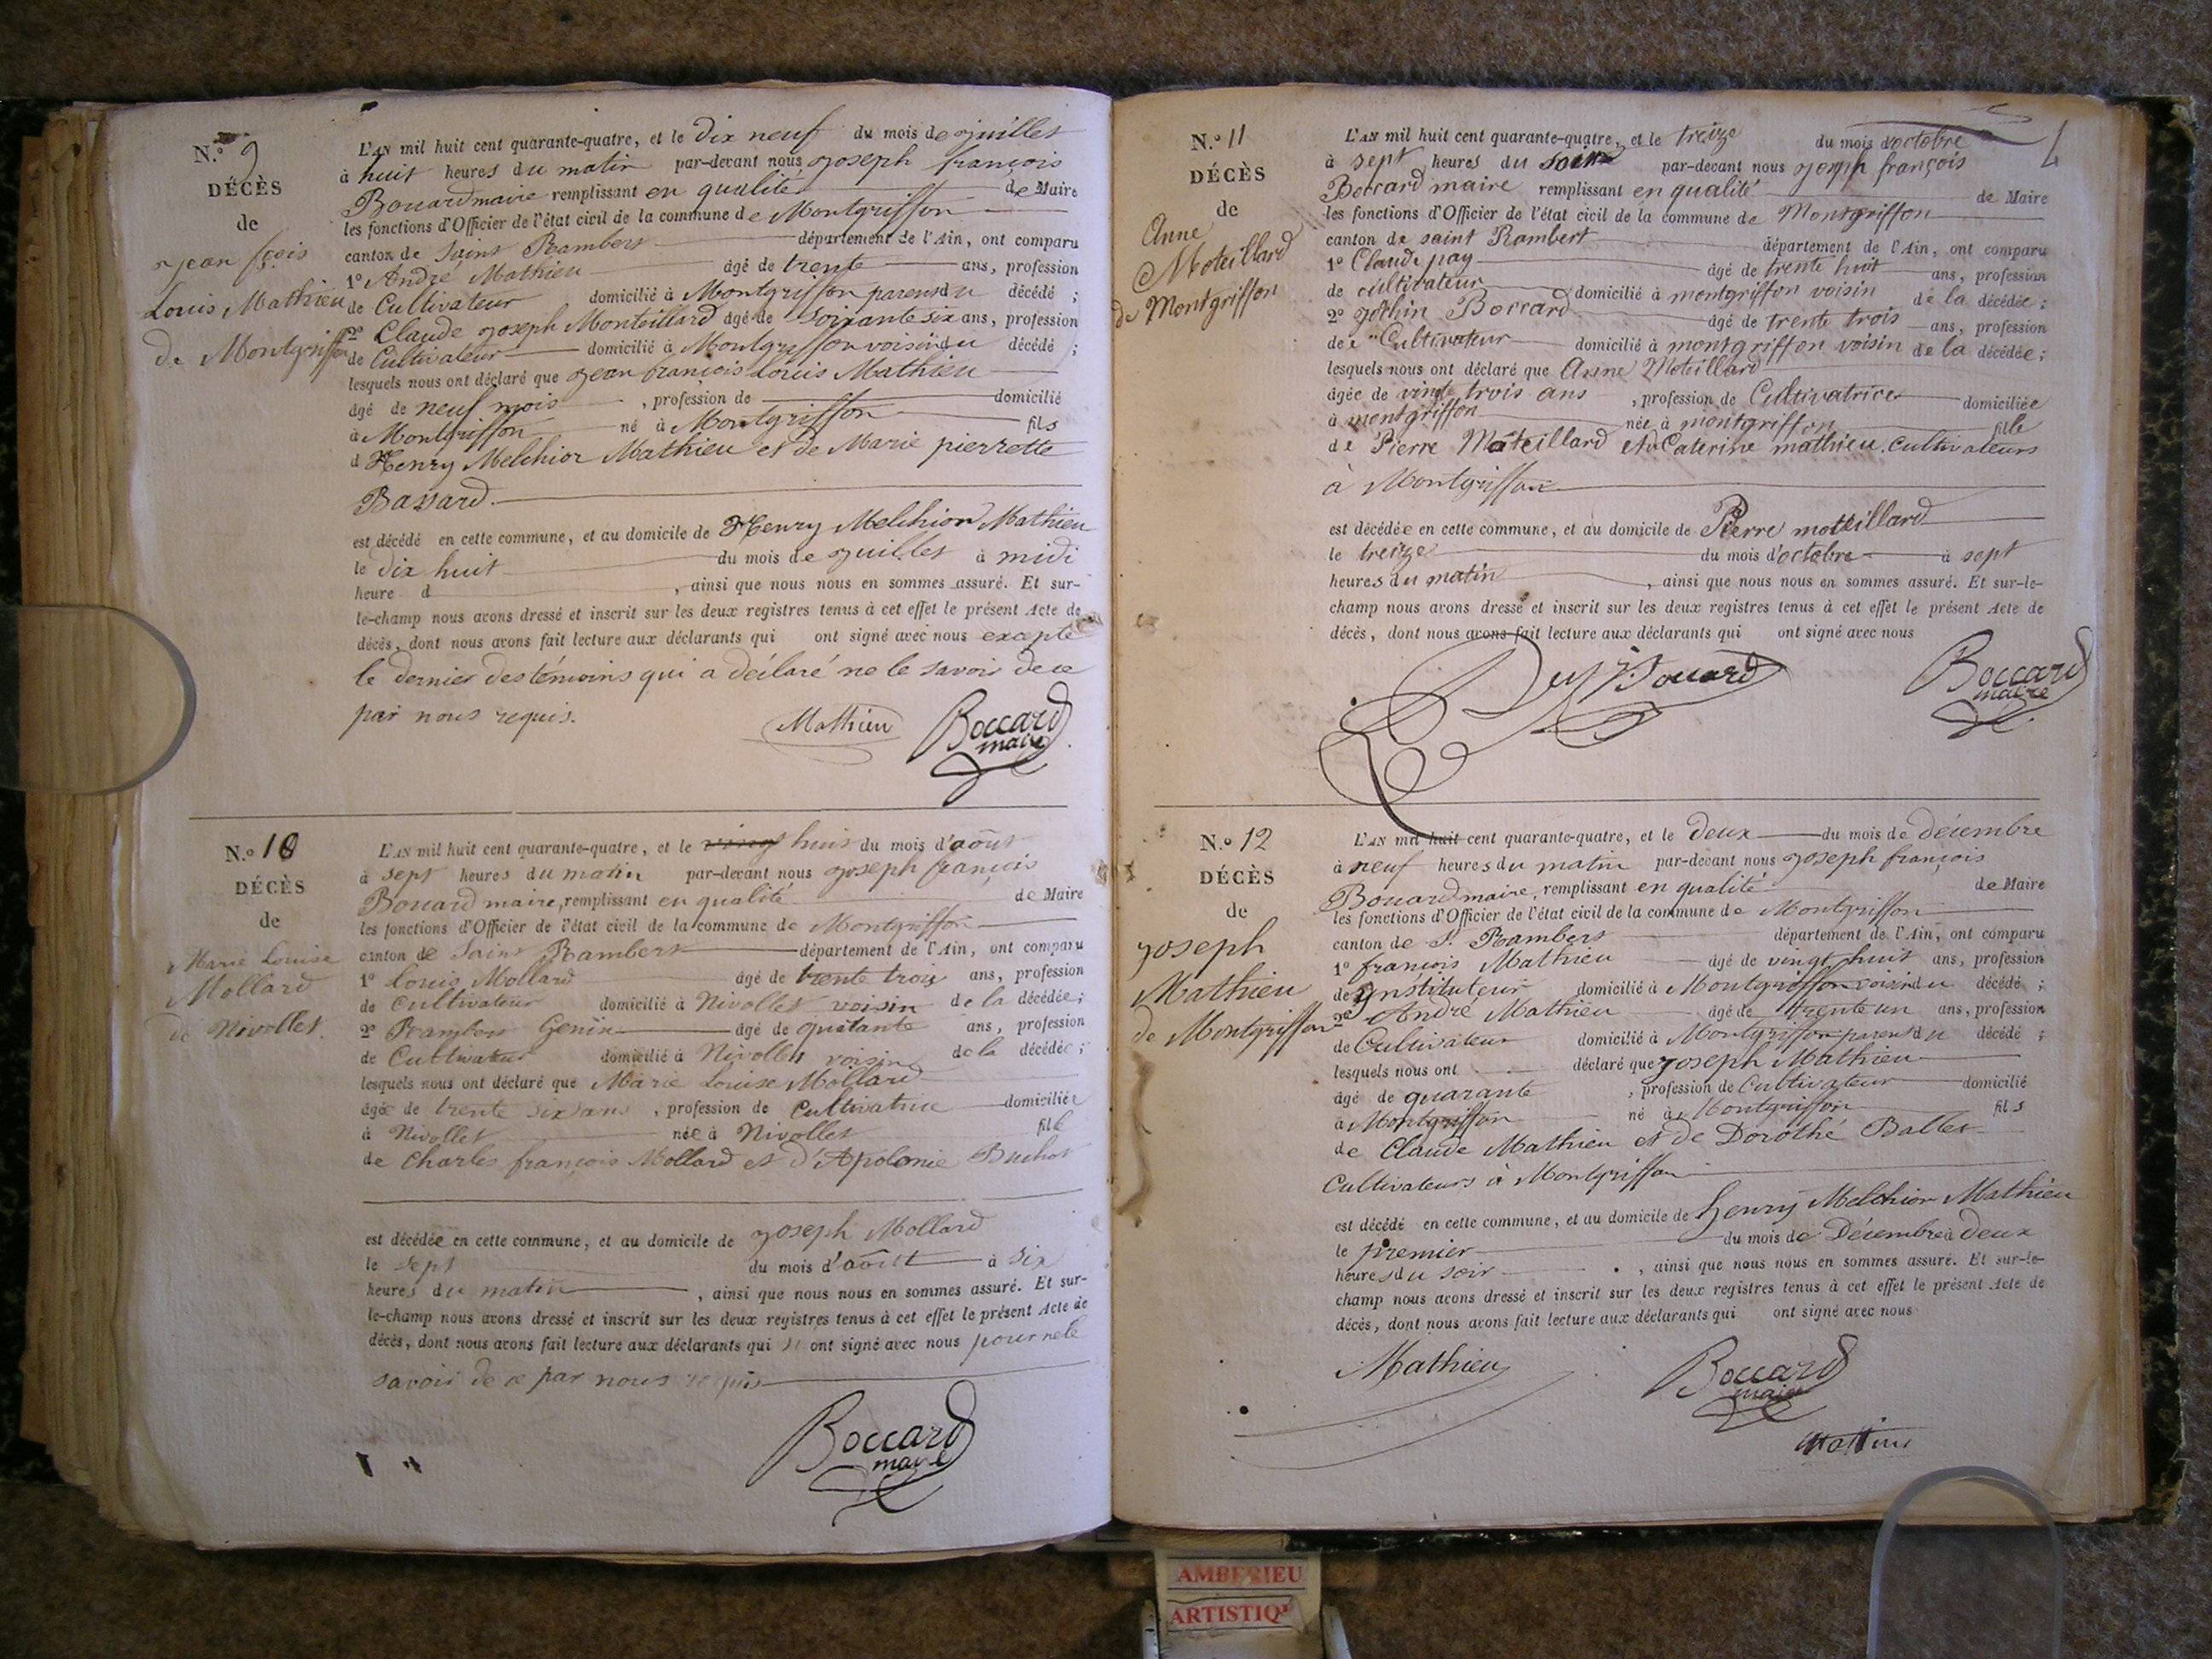 N.º 9
DÉCÈS
de
jean fçois
Louis Mathieu
de Montgriffon
L'AN mil huit cent quarante-quatre, et le dix neuf du mois de juillet
à huit heures du matin par-devant nous joseph françois
Boccard maire remplissant en qualité de Maire
les fonctions d'Officier de l'état civil de la commune de Montgriffon
canton de Saint Rambert département de l'Ain, ont comparu
1º André Mathieu âgé de trente ans, profession
de Cultivateur domicilié à Montgriffon parent du décédé ;
2º Claude joseph Monteillard âgé de soixante six ans, profession
de Cultivateur domicilié à Montgriffon voisin du décédé ;
lesquels nous ont déclaré que jean françois Louis Mathieu
âgé de neuf mois , profession de domicilié
à Montgriffon né à Montgriffon fils
d'Henry Melchior Mathieu et de Marie pierrette
Bassard
est décédé en cette commune, et au domicile de Henry Melchior Mathieu
le dix huit du mois de juillet à midi
heure d , ainsi que nous nous en sommes assuré. Et sur-
le-champ nous avons dressé et inscrit sur les deux registres tenus à cet effet le présent Acte de
décès, dont nous avons fait lecture aux déclarants qui ont signé avec nous excepté
le dernier des témoins qui a déclaré ne le savoir de ce
par nous requis.
Mathieu Boccard
maire
N.º 10
DÉCÈS
de
Marie Louise
Mollard
de Nivollet
L'AN mil huit cent quarante-quatre, et le vingt huit du mois d'août
à sept heures du matin par-devant nous joseph françois
Boccard maire, remplissant en qualité de Maire
les fonctions d'Officier de l'état civil de la commune de Montgriffon
canton de Saint Rambert département de l'Ain, ont comparu
1º Louis Mollard âgé de trente trois ans, profession
de Cultivateur domicilié à Nivollet voisin de la décédée ;
2º Rambert Genin âgé de quarante ans, profession
de Cultivateur domicilié à Nivollet voisin de la décédée ;
lesquels nous ont déclaré que Marie Louise Mollard
âgée de trente six ans , profession de Cultivatrice domiciliée
à Nivollet née à Nivollet fille
de Charles françois Mollard et d'Apolonie Buchot
est décédée en cette commune, et au domicile de joseph Mollard
le sept du mois d'août à six
heures du matin , ainsi que nous nous en sommes assuré. Et sur-
le-champ nous avons dressé et inscrit sur les deux registres tenus à cet effet le présent Acte de
décès, dont nous avons fait lecture aux déclarants qui n'ont signé avec nous pour ne le
savoir de ce par nous requis
Boccard
maire
N.º 11
DÉCÈS
de
Anne
Moteillard
de Montgriffon
L'AN mil huit cent quarante-quatre, et le treize du mois d'octobre
à sept heures du soir par-devant nous joseph françois
Boccard maire remplissant en qualité de Maire
les fonctions d'Officier de l'état civil de la commune de Montgriffon
canton de saint Rambert département de l'Ain, ont comparu
1º Claude pay âgé de trente huit ans, profession
de cultivateur domicilié à montgriffon voisin de la décédée ;
2º Boccard âgé de trente trois ans, profession
de Cultivateur domicilié à montgriffon voisin de la décédée ;
lesquels nous ont déclaré que Anne Moteillard
âgée de vingt trois ans , profession de Cultivatrice domiciliée
à montgriffon née à montgriffon fille
de Pierre Moteillard et de Caterine mathieu cultivateurs
à Montgriffon
est décédée en cette commune, et au domicile de Pierre moteillard
le treize du mois d'octobre à sept
heures du matin , ainsi que nous nous en sommes assuré. Et sur-le-
champ nous avons dressé et inscrit sur les deux registres tenus à cet effet le présent Acte de
décès, dont nous avons fait lecture aux déclarants qui ont signé avec nous
Boccard
maire
N.º 12
DÉCÈS
de
joseph
Mathieu
de Montgriffon
L'AN mil huit cent quarante-quatre, et le deux du mois de décembre
à neuf heures du matin par-devant nous joseph françois
Boccard maire, remplissant en qualité de Maire
les fonctions d'Officier de l'état civil de la commune de Montgriffon
canton de St. Rambert département de l'Ain, ont comparu
1º françois Mathieu âgé de vingt huit ans, profession
de instituteur domicilié à Montgriffon voisin du décédé ;
2º André Mathieu âgé de trente un ans, profession
de Cultivateur domicilié à Montgriffon parent du décédé ;
lesquels nous ont déclaré que joseph Mathieu
âgé de quarante , profession de Cultivateur domicilié
à Montgriffon né à Montgriffon fils
de Claude Mathieu et de Dorothé Ballet
Cultivateurs à Montgriffon
est décédé en cette commune, et au domicile de henry Melchior Mathieu
le premier du mois de Décembre à deux
heures du soir , ainsi que nous nous en sommes assuré. Et sur-le-
champ nous avons dressé et inscrit sur les deux registres tenus à cet effet le présent Acte de
décès, dont nous avons fait lecture aux déclarants qui ont signé avec nous
Mathieu Boccard
maire
AMBERIEU
ARTISTIQ